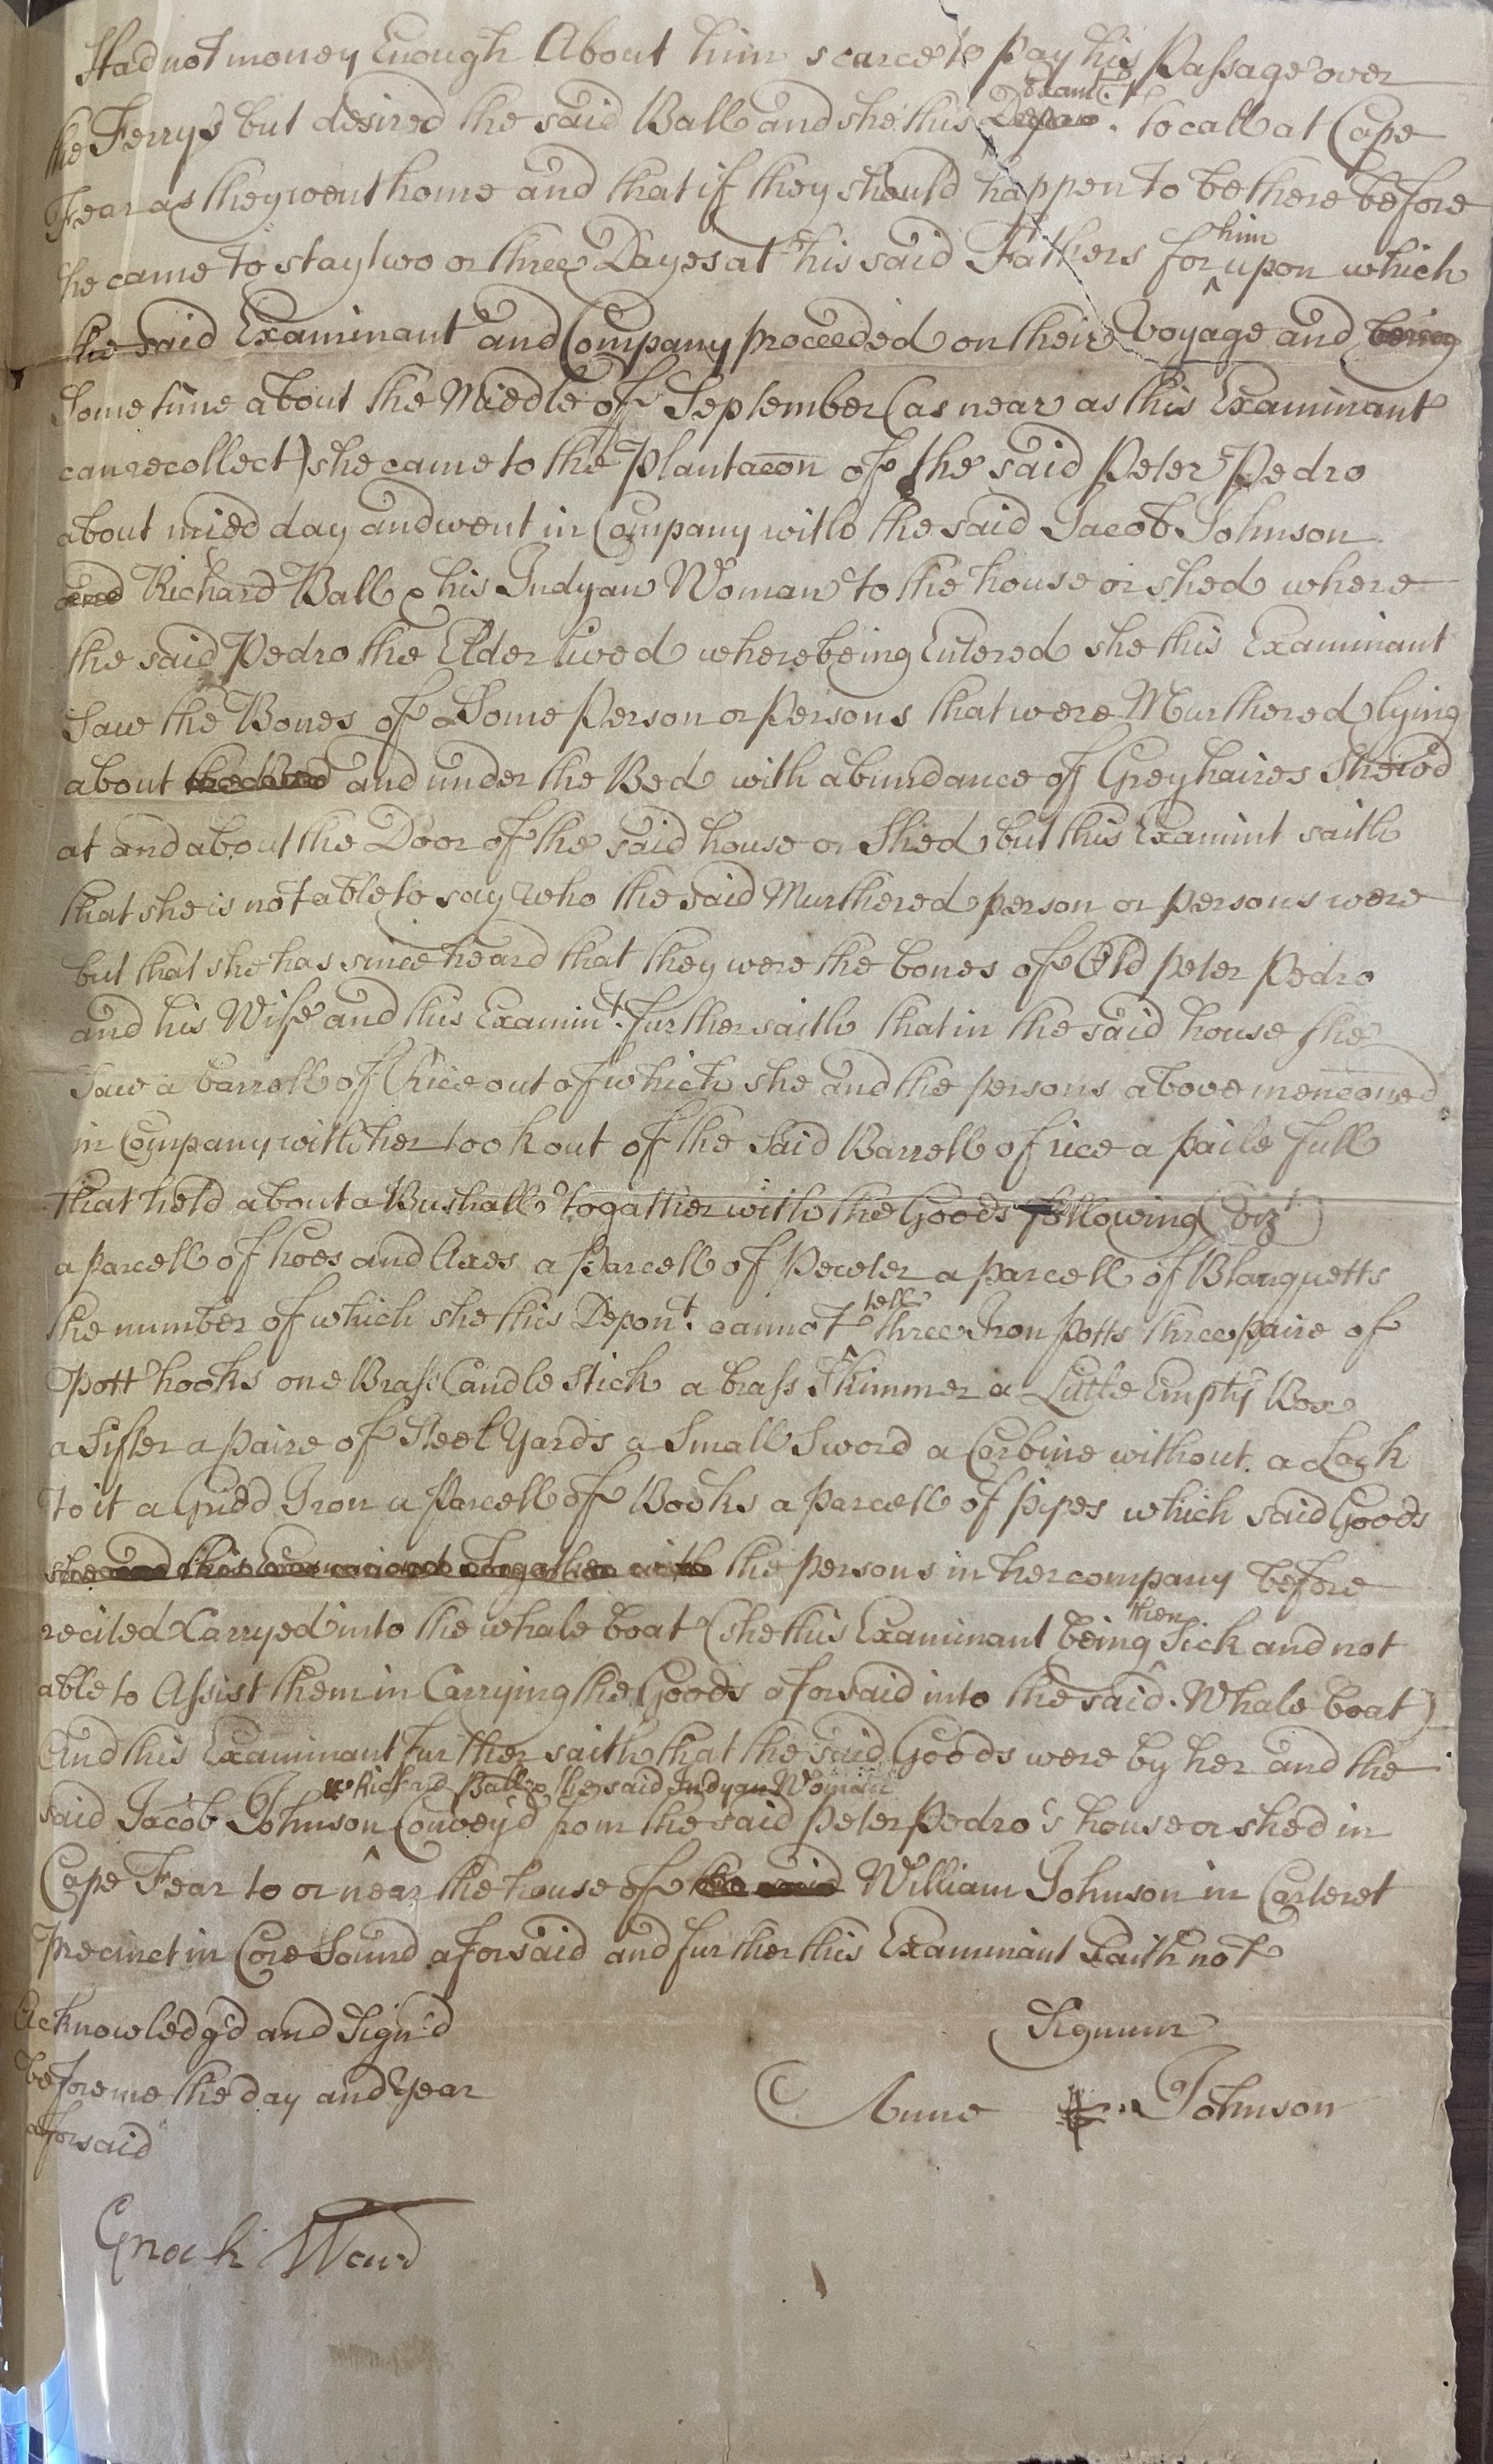 Had not money Enough About him scarce to pay his Passage over
the Ferrys but desired the said Ball and she this Examt. to call at Cape
Fear as they went home and that if they should happen to be there before
he came to stay two or three Dayes at his said Fathers for him upon which
the said Examinant and Company proceeded on their Voyage and being
Some time about the Middle of September (as near as this Examinant
can recollect) she came to the Plantacon of the said Peter Pedro
about mied day and went in Company with the said Jacob Johnson
and Richard Ball & his Indyan Woman to the house or shed where
the said Pedro the Elder lived where being Entered she this Examinant
Saw the Bones of Some Person or Persons that were Murthered lying
about and under the Bed with abundance of Grey haires Shew'd
at and about the Door of the said house or Shed but this Examint saith
that she is not able to say who the said Murthered person or persons were
but that she has since heard that they were the bones of Old Peter Pedro
and his Wife and this Examint. further saith that in the said house she
Saw a barrell of Rice out of which she and the persons above menconed
in Company with her took out of the Said Barrell of rice a paile full
that held about a Bushall togather with the Goods following (Viz)
a parcell of hoes and Axes a parcell of Pewter a parcell of Blanquetts
the number of which she this Depont. cannot tell three Iron Potts three paire of
Pott hooks one Brass Candle Stick a brass Skimmer a Little Empty Box
a Sifter a paire of Steel Yards a Small Sword a Carbine without a Lock
to it a Gridd Iron a Parcell of Books a parcell of pipes which said Goods
she and this Examinant togather with the persons in her company before
recited Carryed into the whale boat (she this Examinant being then Sick and not
able to Assist them in Carrying the Goods aforsaid into the said Whale boat)
And this Examinant further saith that the said Goods were by her and the
said Jacob Johnson Richard Ball & the said Indyan Woman Convey'd from the said Peter Pedro's house or shed in
Cape Fear to or near the house of the said William Johnson in Carteret
Precinct in Core Sound aforsaid and further this Examinant Saith not
Acknowledg'd and Sign'd
before me the day and Year
aforsaid
Signum
Anne Johnson
Enoch Ward